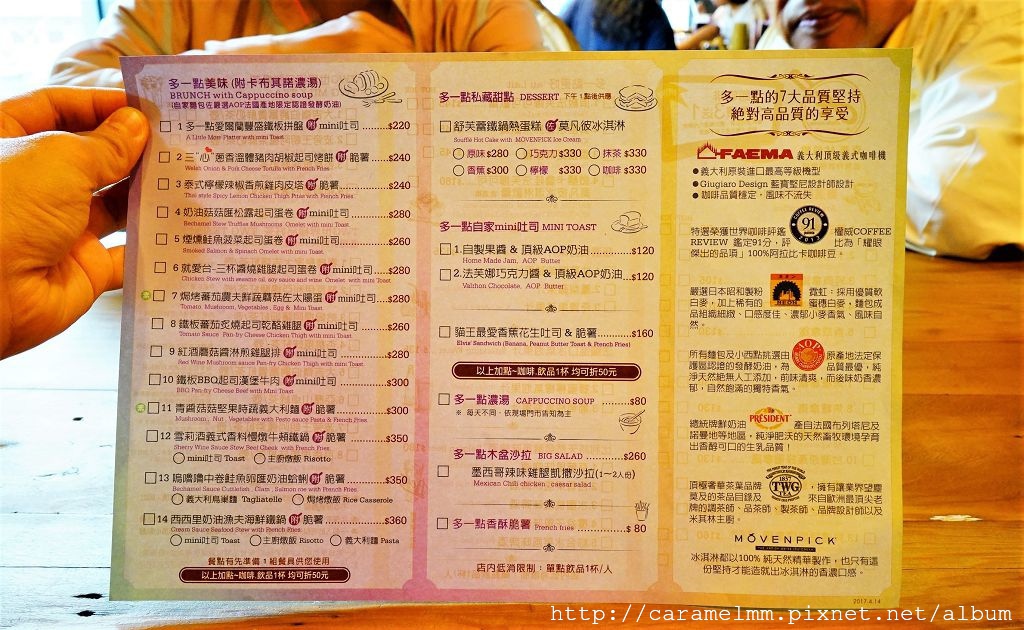 多一點美味 (附卡布其諾濃湯)
BRUNCH with Cappuccino soup
(自家麵包佐嚴選AOP法國產地限定認證發酵奶油)
1 多一點愛爾蘭豐盛鐵板拼盤 附 mini吐司 $220
A Little More Platter with mini Toast
2 三"心"蔥香溫體豬肉胡椒起司烤餅 附 脆薯 $240
Welsh Onion & Pork Cheese Tortilla with French Fries
3 泰式檸檬辣椒香煎雞肉皮塔 附 脆薯 $240
Thai style Spicy Lemon Chicken Thigh Pitas with French Fries
4 奶油菇菇匯松露起司蛋卷 附 mini吐司 $280
Bechamel Stew Truffles Mushrooms Omelet with mini Toast
5 煙燻鮭魚菠菜起司蛋卷 附 mini吐司 $260
Smoked Salmon & Spinach Omelet with mini Toast
6 就愛台-三杯醬燒雞腿起司蛋卷 附 mini吐司 $280
Chicken Stew with sesame oil, soy sauce and wine Omelet with mini Toast
7 焗烤蕃茄農夫鮮蔬蘑菇佐太陽蛋 附 mini吐司 $280
Tomato, Mustroom, Vegetables, Egg & Mini Toast
8 鐵板蕃茄炙燒起司乾酪雞腿 附 mini吐司 $260
Tomato Sauce Pan-fry Cheese Chicken Thigh with mini Toast
9 紅酒蘑菇醬淋煎雞腿排 附 mini吐司 $280
Red Wine Mushroom sauce Pan-fry Chicken Thigh with mini Toast
10 鐵板BBQ起司漢堡牛肉 附 mini吐司 $300
BBQ Pan-fry Cheese Beef with Mini Toast
11 青醬菇菇堅果時蔬義大利麵 附 脆薯 $300
Mushroom, Nut, Vegetables with Pesto sauce Pasta & French Fries
12 雪莉酒義式香料慢燉牛頰鐵鍋 附 脆薯 $350
Sherry Wine Sauce Stew Beef Cheek with French Fries
mini吐司 Toast 主廚燉飯 Risotto
13 嗚嚕嚕中卷鮭魚卵匯奶油蛤蜊 附 脆薯 $350
Bechamel Sauce Cuttlefish, Clam, Salmon roe with French Fries
義大利鳥巢麵 Tagliatelle 焗烤燉飯 Rice Casserole
14 西西里奶油漁夫海鮮鐵鍋 附 脆薯 $360
Cream Sauce Seafood Stew with French Fries
mini吐司 Toast 主廚燉飯 Risotto 義大利麵 Pasta
餐點有先準備 1 組餐具供您使用
以上加點~咖啡.飲品1杯 均可折50元
多一點私藏甜點 DESSERT 下午 1 點後供應
舒芙蕾鐵鍋熱蛋糕 佐 莫凡彼冰淇淋
Souffle Hot Cake with MOVENPICK Ice Cream
原味 $280 巧克力 $330 抹茶 $330
香蕉 $300 檸檬 $330 咖啡 $330
多一點自家mini吐司 MINI TOAST
1.自製果醬 & 頂級AOP奶油 $120
Home Made Jam, AOP Butter
2.法芙娜巧克力醬 & 頂級AOP奶油 $120
Valrhon Chocolate, AOP Butter
貓王最愛香蕉花生吐司 & 脆薯 $160
Elvis' Sandwich (Banana, Peanut Butter Toast & French Fries)
以上加點~咖啡.飲品1杯 均可折50元
多一點濃湯 CAPPUCCINO SOUP $80
※ 每天不同，依現場門市告知為主
多一點木盆沙拉 BIG SALAD $260
墨西哥辣味雞腿凱撒沙拉(1~2人份)
Mexican Chili chicken, caesar salad
多一點香酥脆薯 French fries $ 80
店內低消限制：單點飲品1杯/人
多一點的7大品質堅持
絕對高品質的享受
FAEMA 義大利頂級義式咖啡機
● 義大利原裝進口最高等級機型
● Giugiaro Design 藍寶堅尼設計師設計
● 咖啡品質穩定，風味不流失
特選榮獲世界咖啡評鑑 91 2013 權威COFFEE
REVIEW 鑑定91分，評 比為「耀眼
傑出的品項」100%阿拉比卡咖啡豆。
嚴選日本昭和製粉 霓虹：採用優質軟
白麥，加上稀有的 蜜穗白麥，麵包成
品組織細緻、口感度佳、濃郁小麥香氣、風味自
然。
所有麵包及小西點挑選由 AOP 原產地法定保
護區認證的發酵奶油，為 品質最優，純
淨天然絕無人工添加，前味清爽，而後味奶香濃
郁，自然飽滿的獨特香氣。
總統牌鮮奶油 PRÉSIDENT 產自法國布列塔尼及
諾曼地等地區，純淨肥沃的天然畜牧環境孕育
出香醇可口的生乳品質！
頂極奢華茶葉品牌 1837 TWG TEA ，擁有讓業界望塵
莫及的茶品目錄及 來自歐洲最頂尖老
牌的調茶師、品茶師、製茶師、品牌設計師以及
米其林主廚。
MÖVENPICK
冰淇淋都以100% 純天然精華製作，也只有這
份堅持才能造就出冰淇淋的香濃口感。
2017.4.14
http://caramelmm.pixnet.net/album